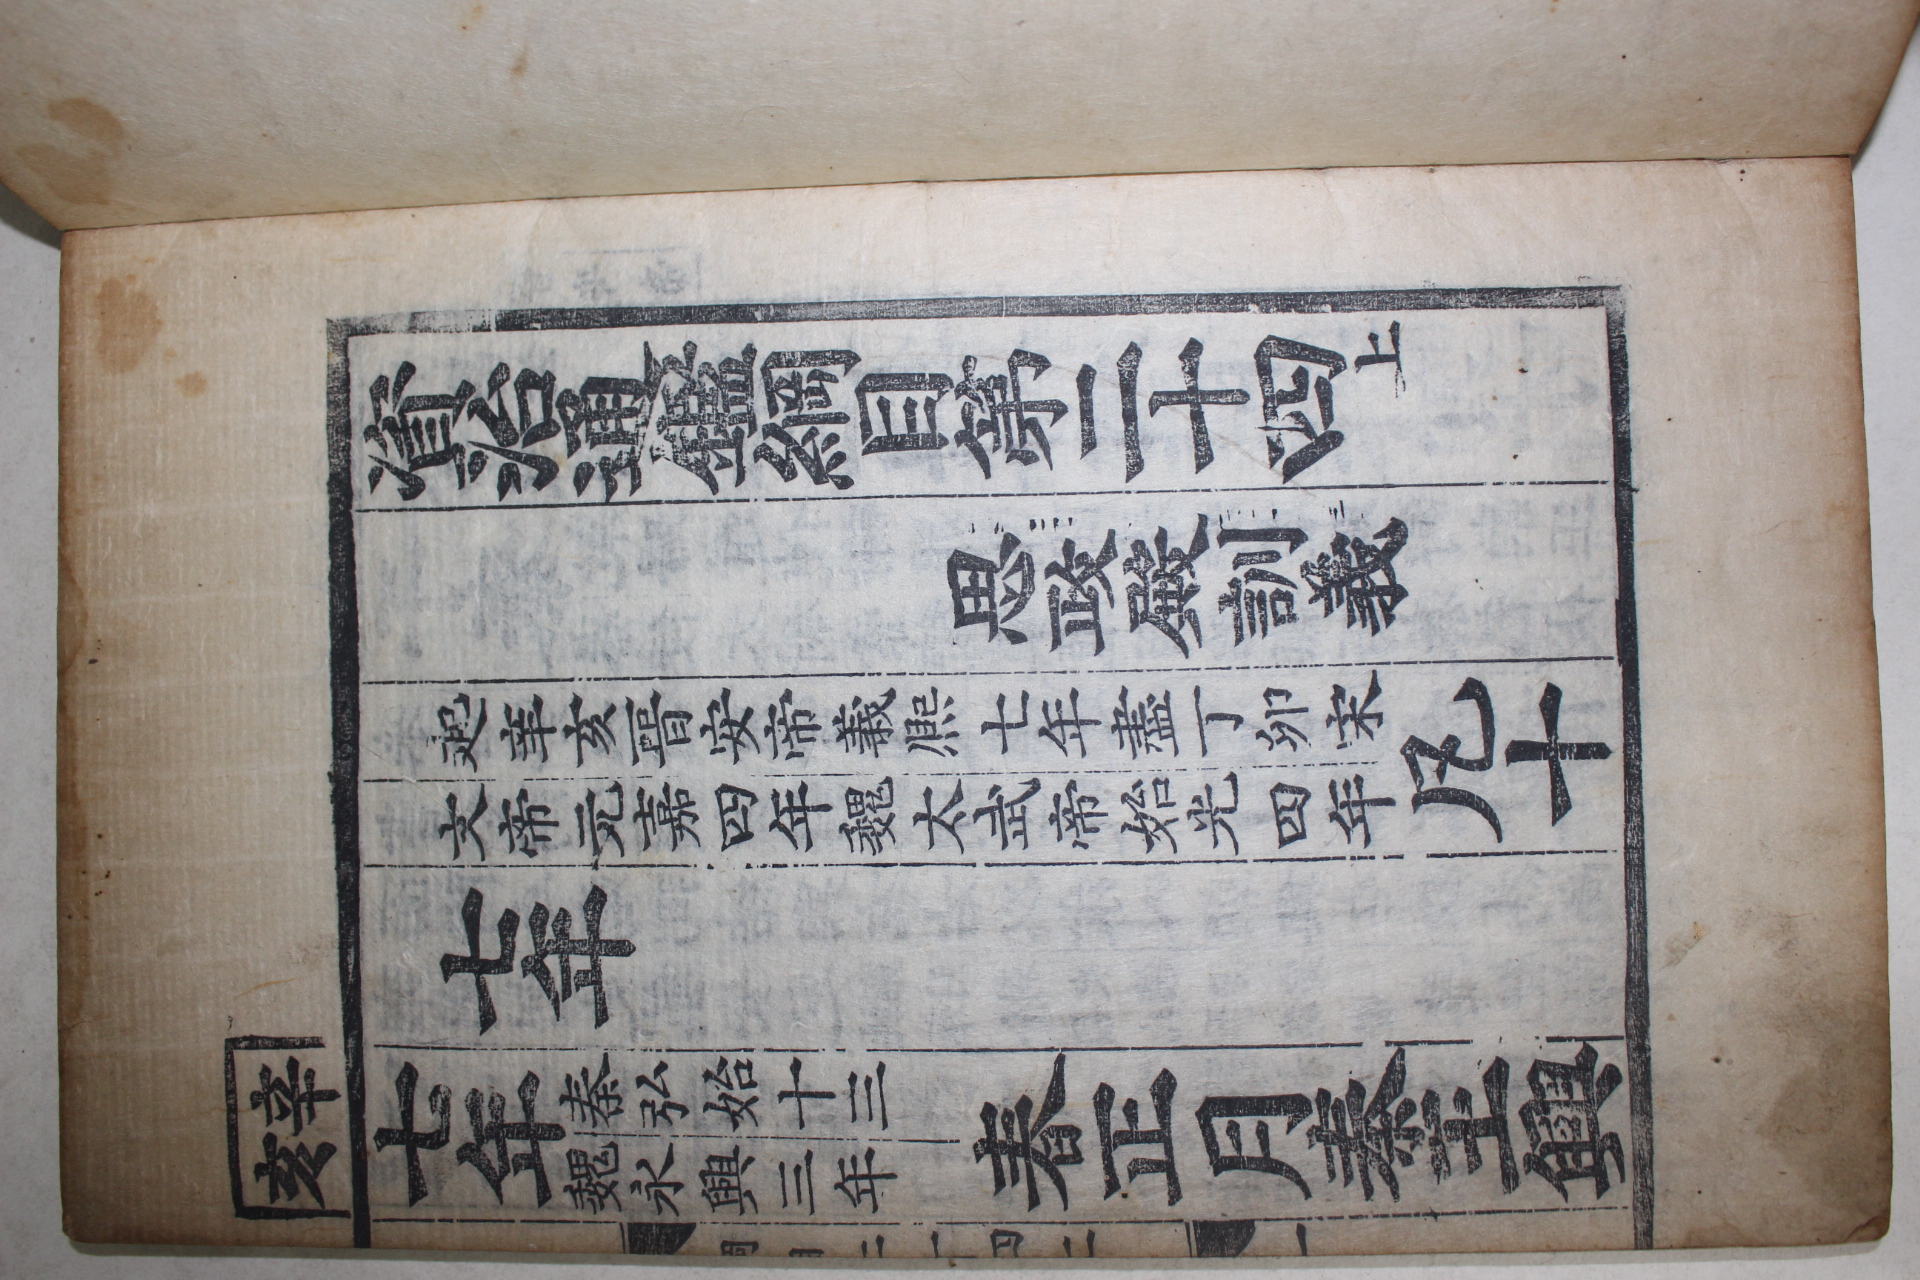 資治通鑑綱目第二十四上
思政殿訓義
起辛亥晉安帝義熙七年盡丁卯宋
文帝元嘉四年魏太武帝始光四年
凡十
七年
辛亥
七年
秦弘始十三
魏永興三年
春正月秦王興
綱目二十四上